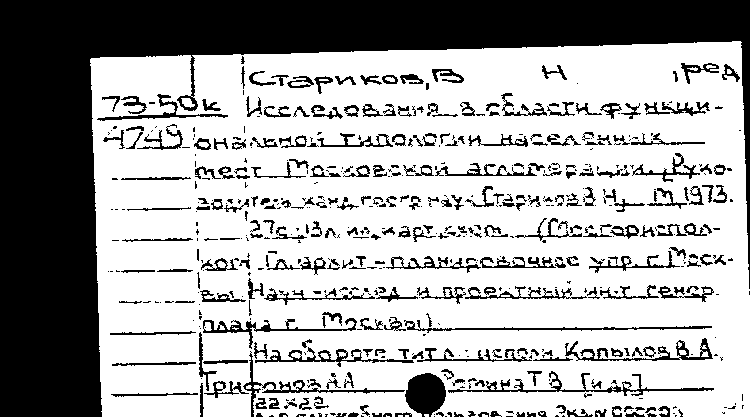 Стариков, В Н , ред
73-50к Исследования в области функци-
4749 ональной типологии населенных
мест Московской агломерации. Руко-
водитель канд. геогр наук Стариков В Н, М, 1973.
27с, 13л. ил, карт, схем. (Мосгориспол-
ком Гл. архит-планировочное упр. г. Моск-
вы Науч-исслед и проектный ин-т генер
плана г. Москвы).
На обороте тит л: исполн. Копылов В.А.
Трифонов А А. Фомина Т В [и др]
служебного пользования